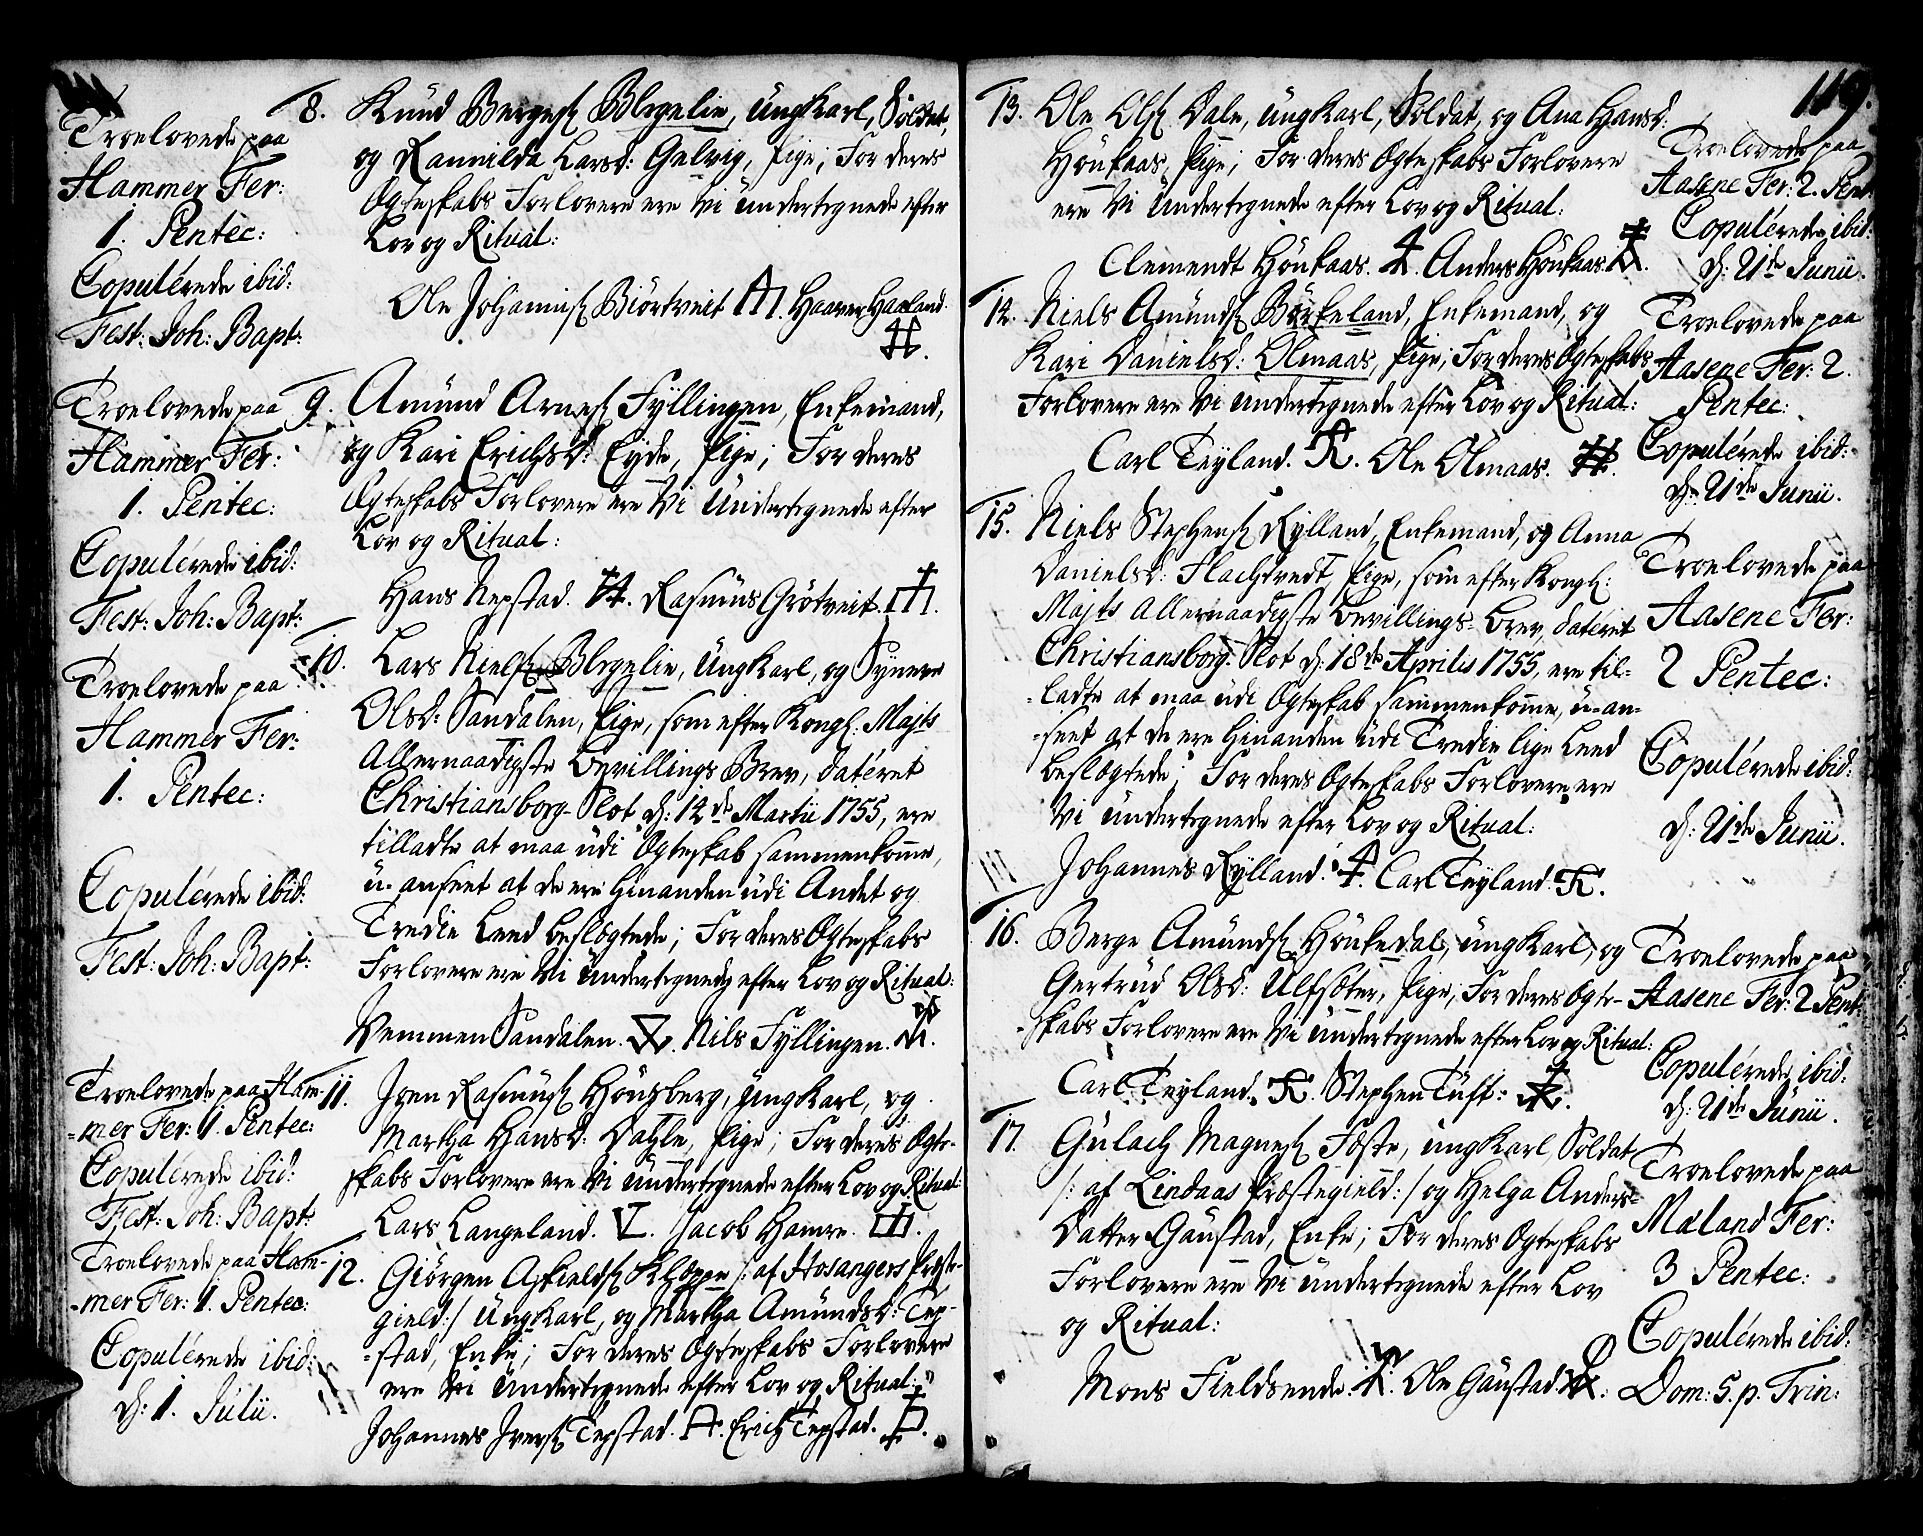 Troelovede paa
Hammer Fer:
1. Pentec:
Copulérede ibid:
Fest: Joh: Bapt:
8. Knud Bergess. Blegelie, Ungkarl, Soldat,
og Rannilda Larsd: Gelvig, Pige; For deres
Ægteskabs Forlovere ere Vi undertegnede efter
Lov og Ritual:
Ole Johanniss. Biörtveit. Haaver Haaland.
Troelovede paa
Hammer Fer:
1. Pentec:
Copulérede ibid:
Fest: Joh: Bapt:
9. Amund Arness. Fyllingen, Enkemand,
og Kari Erichsd: Eyde, Pige; For deres
Ægteskabs Forlovere ere Vi Undertegnede efter
Lov og Ritual:
Hans Nepstad. Rasmus Grötveit.
Troelovede paa
Hammer Fer:
1. Pentec:
Copulérede ibid:
Fest: Joh: Bapt:
10. Lars Nielss. Blegelie, Ungkarl, og Synneve
Olsd: Sandalen, Pige, som efter Kongl: Majts
Allernaadigste Bevillings Brev, datéret
Christiansborg-Slot d: 14de Martii 1755, ere
tilladte at maa udi Ægteskab sammenkomme,
u-anseet at de ere hinanden udi Andet og
Tredie Leed beslögtede; For deres Ægteskabs
Forlovere ere Vi Undertegnede efter Lov og Ritual:
Vemmen Sandalen. Nils Fyllingen.
Troelovede paa Ham-
-mer Fer: 1. Pentec:
Copulérede ibid:
Fest: Joh: Bapt:
11. Joen Rasmuss. Hönsberg, Ungkarl, og
Martha Hansd: Dahle, Pige; For deres Ægte-
skabs Forlovere ere Vi Undertegnede efter Lov og Ritual:
Lars Langeland. V. Jacob Hamre.
Troelovede paa Ham-
-mer Fer: 1. Pentec:
Copulérede ibid:
d: 1. Julii.
12. Giörgen Askields. Kleppe /: af Hosangers Præste-
gield:/ Ungkarl, og Martha Amundsd: Tep-
-stad, Enke; For deres Ægteskabs Forlovere
ere Vi Undertegnede efter Lov og Ritual:
Johannes Iverss. Tepstad. Erich Tepstad.
119.
13. Ole Olss. Dale, Ungkarl, Soldat, og Ana Hansd:
Hönkaas, Pige; For deres Ægteskabs Forlovere
ere Vi Undertegnede efter Lov og Ritual:
Clemendt Hönkaas. Anders Hönkaas.
Troelovede paa
Aasene Fer: 2. Pent:
Copulérede ibid:
d: 21de Junii.
14. Niels Amunds. Börkeland, Enkemand, og
Kari Danielsd: Olmaas, Pige; For deres Ægteskabs
Forlovere ere Vi Undertegnede efter Lov og Ritual:
Carl Teyland. Ole Olmaas.
Troelovede paa
Aasene Fer: 2.
Pentec:
Copulérede ibid:
d: 21de Junii.
15. Niels Stephenss. Rylland, Enkemand, og Anna
Danielsd: Flachtvedt, Pige, som efter Kongl:
Majts Allernaadigste Bevillings-Brev, datéret
Christiansborg-Slot d: 18de Aprilis 1755, ere til-
-ladte at maa udi Ægteskab sammenkomme, u-an-
-seet at de ere hinanden udi Tredie lige Leed
beslögtede; For deres Ægteskabs Forlovere ere
Vi Undertegnede efter Lov og Ritual:
Johannes Rylland. Carl Teyland.
Troelovede paa
Aasene Fer:
2 Pentec:
Copulérede ibid:
d: 21de Junii.
16. Berge Amunds. Hönkedal, Ungkarl, og
Gertrud Olsd: Ulfsæter, Pige; For deres Ægte-
-skabs Forlovere ere Vi Undertegnede efter Lov og Ritual:
Carl Teyland. Stephen Tuft:
Troelovede paa
Aasene Fer: 2 Pent:
Copulérede ibid:
d: 21de Junii.
17. Gulach Magness. Feste, Ungkarl, Soldat
/: af Lindaas Præstegield:/ og Helga Anders-
Datter Gaustad, Enke; For deres Ægteskabs
Forlovere ere Vi Undertegnede efter Lov
og Ritual:
Mons Fieldsende. Ole Gaustad.
Troelovede paa
Mæland Fer:
3 Pentec:
Copulérede ibid:
Dom: 5. p. Trin: